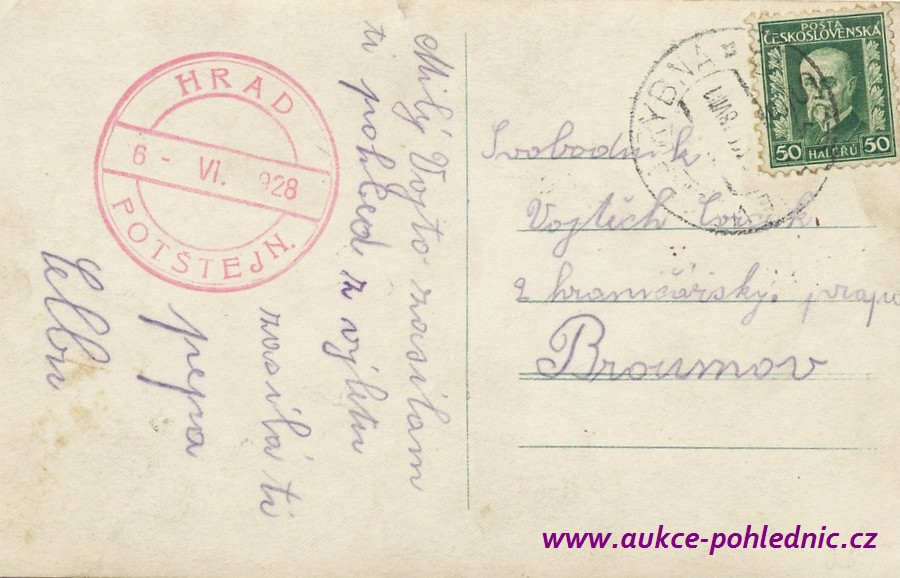 HRAD
6 - VI. 928
POTŠTEJN.
Milý Vojto zasílam
ti pohled z výletu
zasílá ti
pepa
POŠTA
ČESKOSLOVENSKÁ
50 HALÉŘŮ 50
Svobodník
Vojtěch
hraničářský prapo
Broumov
www.aukce-pohlednic.cz